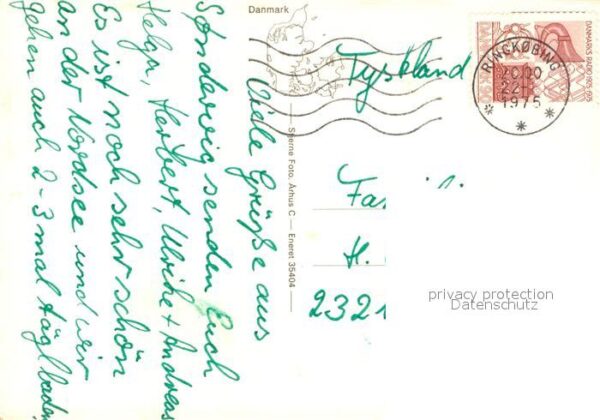 Danmark
DANMARKS RADIO 1925-1975
RINGKØBING
20.00
22.7
1975
Tyskland
Viele Grüße aus
Søndervig senden Euch
Helga, Herbert, Ulrike + Andreas
Es ist noch sehr schön
an der Nordsee und wir
gehen auch 2-3 mal tägl baden.
Stjerne Foto, Århus C — Eneret 35404
Fa
H.
2321
privacy protection
Datenschutz